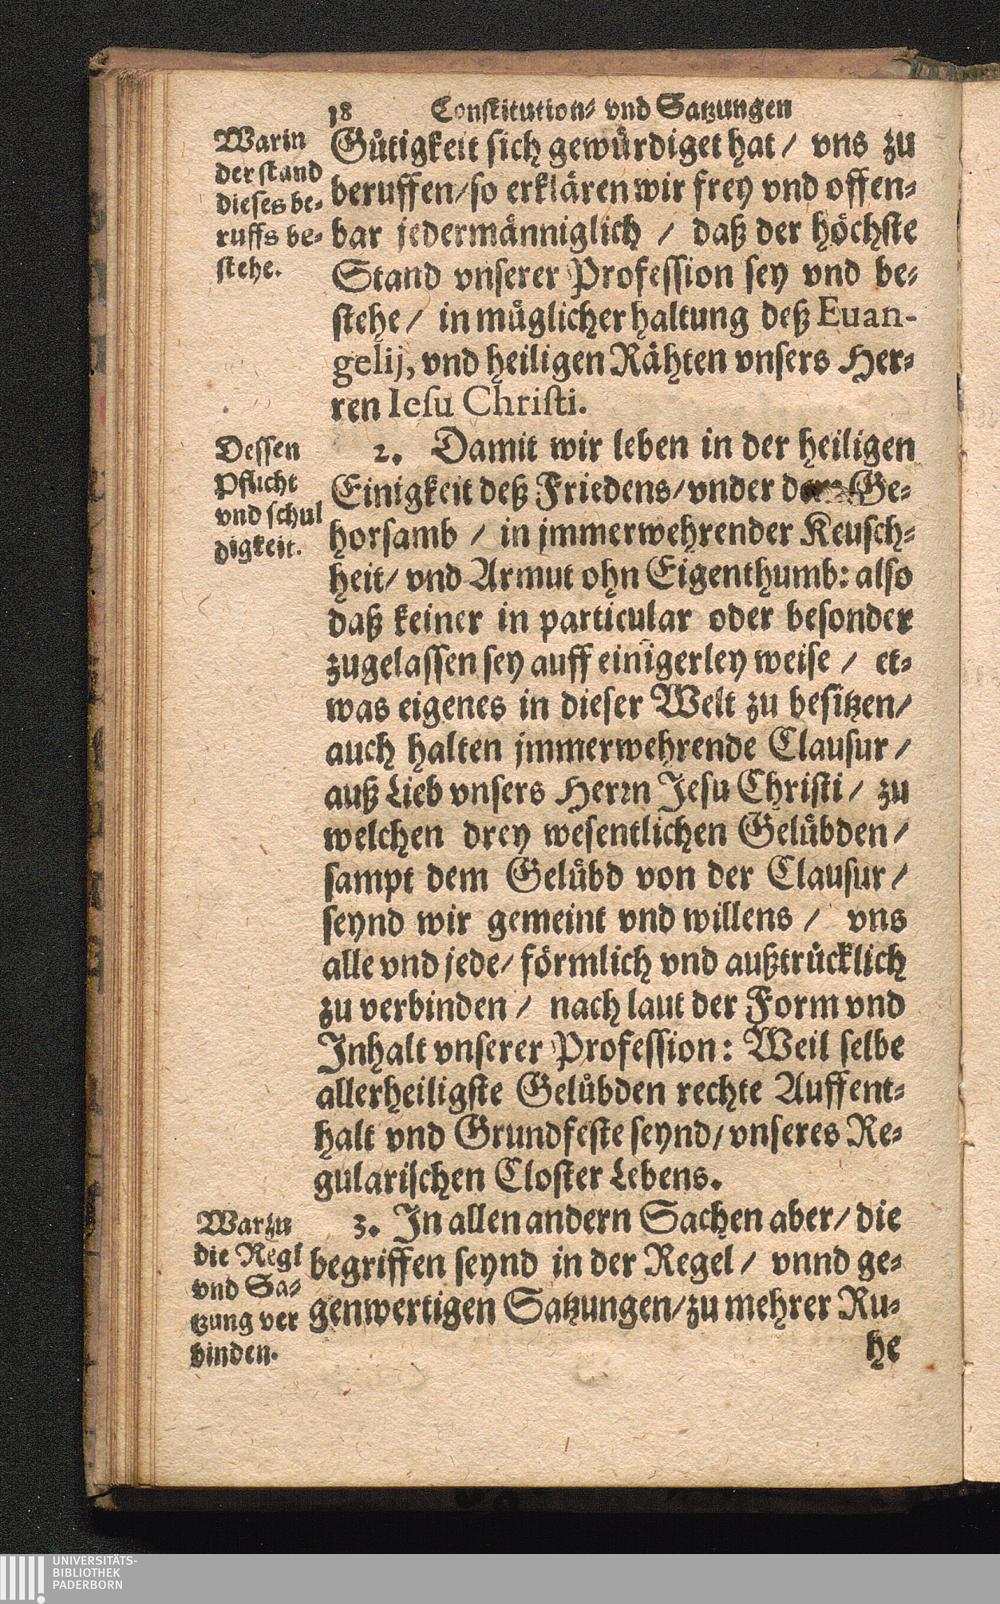 18 Constitution- vnd Satzungen
Warin
der stand
dieses be-
ruffs be-
stehe.
Gütigkeit sich gewürdiget hat / vns zu
beruffen / so erklären wir frey vnd offen-
bar jedermänniglich / daß der höchste
Stand vnserer Profession sey vnd be-
stehe / in müglicher haltung deß Euan-
gelij, vnd heiligen Rähten vnsers Her-
ren Iesu Christi.
Dessen
Pflicht
vnd schul
digkeit.
2. Damit wir leben in der heiligen
Einigkeit deß Friedens / vnder Ge-
horsamb / in jmmerwehrender Keusch-
heit / vnd Armut ohn Eigenthumb: also
daß keiner in particular oder besonder
zugelassen sey auff einigerley weise / et-
was eigenes in dieser Welt zu besitzen /
auch halten jmmerwehrende Clausur /
auß Lieb vnsers Herrn Jesu Christi / zu
welchen drey wesentlichen Gelübden /
sampt dem Gelübd von der Clausur /
seynd wir gemeint vnd willens / vns
alle vnd jede / förmlich vnd außtrücklich
zu verbinden / nach laut der Form vnd
Inhalt vnserer Profession: Weil selbe
allerheiligste Gelübden rechte Auffent-
halt vnd Grundfeste seynd / vnseres Re-
gularischen Closter Lebens.
Warzu
die Regl
vnd Sa-
tzung ver
binden.
3. In allen andern Sachen aber / die
begriffen seynd in der Regel / vnnd ge-
genwertigen Satzungen / zu mehrer Ru-
he
UNIVERSITÄTS-
BIBLIOTHEK
PADERBORN